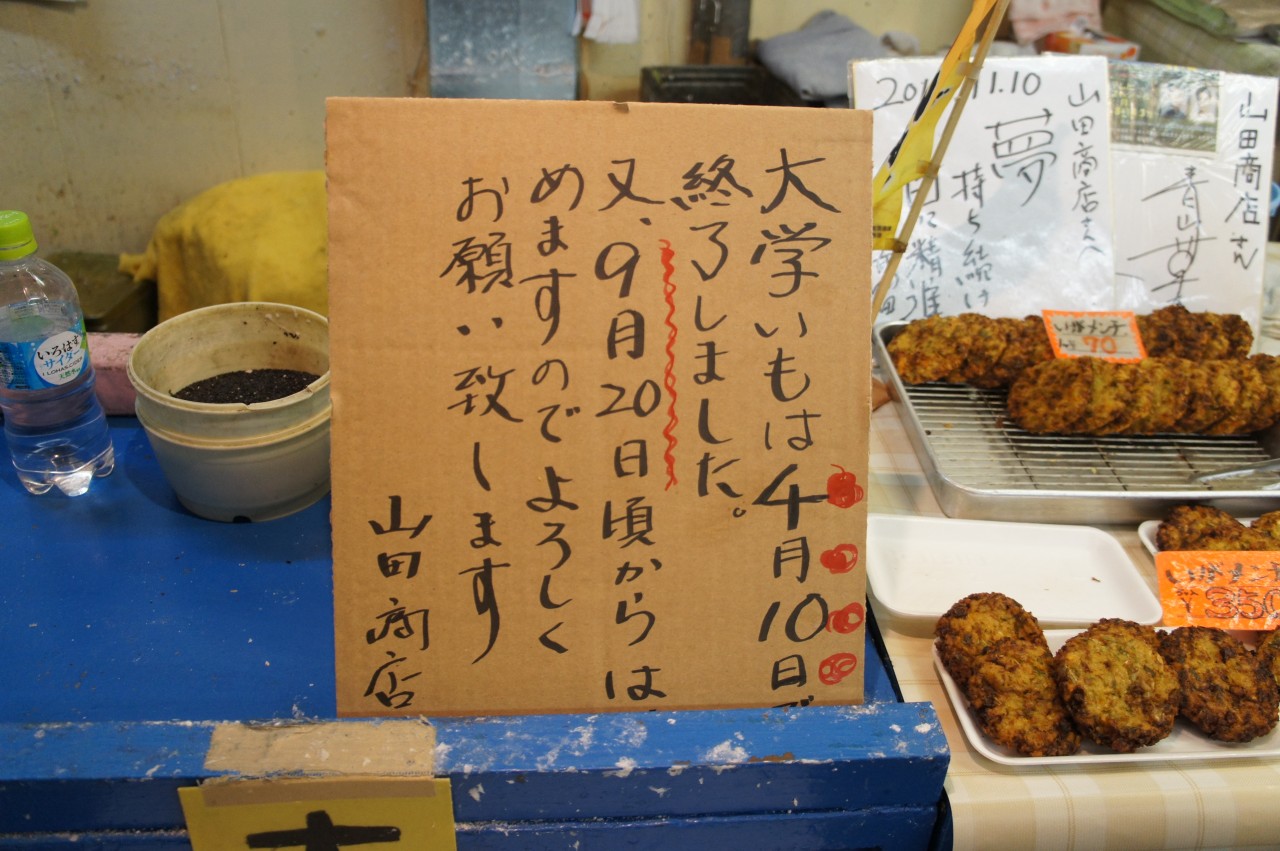 大学いもは4月10日で
終了しました。
又、9月20日頃からは
めますのでよろしく
お願い致します
山田商店
11.10
山田商店さんへ
夢
持ち続け
に精進
山田商店さん
いがメンチ
70
いがメンチ
350
いろはす
サイダー
I LOHAS